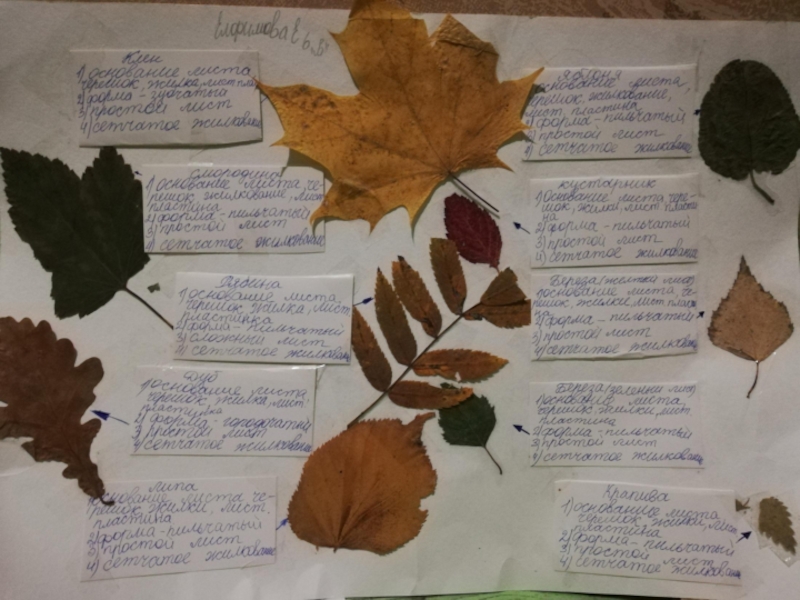 Елфимова Е 6"В"
Клен
1) основание листа,
черешок, жилка, лист. пл.
2) форма - зубчатый
3) простой лист
4) сетчатое жилкование
Смородина
1) основание листа, че-
решок, жилкование, лист.
пластина
2) форма - пильчатый
3) простой лист
4) сетчатое жилкование
Рябина
1) основание листа
черешок, жилка, лист.
пластинка
2) форма - пильчатый
3) сложный лист
4) сетчатое жилкован
Дуб
1) основание листа
черешок, жилка, лист.
пластинка
2) форма -
3) простой лист
4) сетчатое жилкован
Липа
основание листа че-
решок, жилки, лист.
пластина
2) форма - пильчатый
3) простой лист
4) сетчатое жилкован
Яблоня
основание листа,
черешок, жилкование,
лист. пластина
2) форма - пильчатый
3) простой лист
4) сетчатое жилкован
кустарник
1) основание листа, чере-
шок, жилки, лист. пласти
на
2) форма - пильчатый
3) простой лист
4) сетчатое жилкован
Береза (желтый лист)
1) основание листа, че-
решок, жилки, лист. пласти
на
2) форма - пильчатый
3) простой лист
4) сетчатое жилкован
Береза (зеленый лист)
1) основание листа,
черешок, жилки, лист.
пластина
2) форма - пильчатый
3) простой лист
4) сетчатое жилкован
Крапива
1) основание листа
черешок, жилки, лист.
пластина
2) форма - пильчатый
3) простой лист
4) сетчатое жилкован